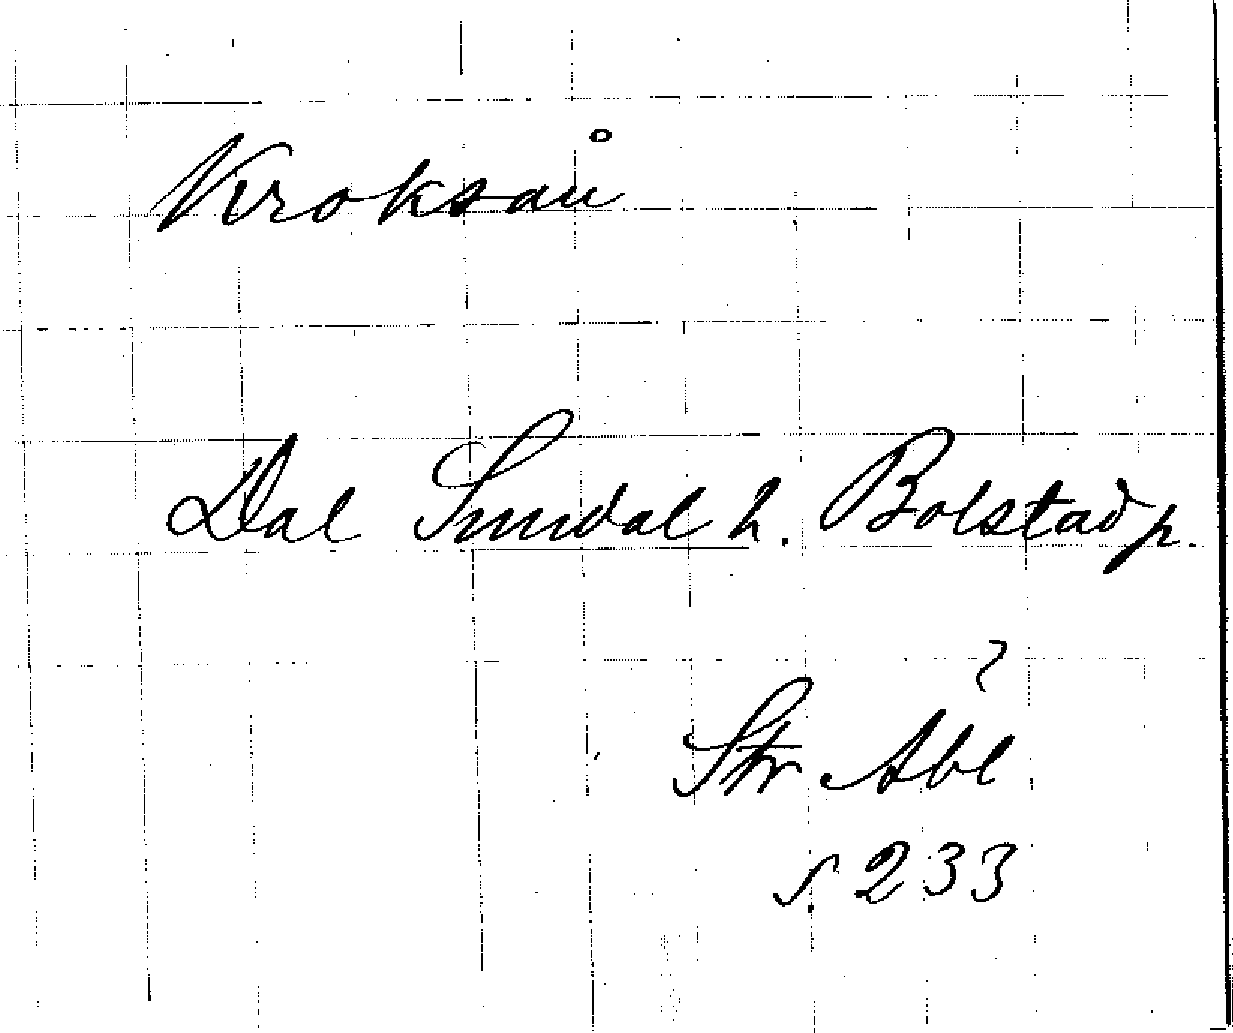 Kroksån
Dal Sundal h. Bolstad p.
Str Åbl
s. 233